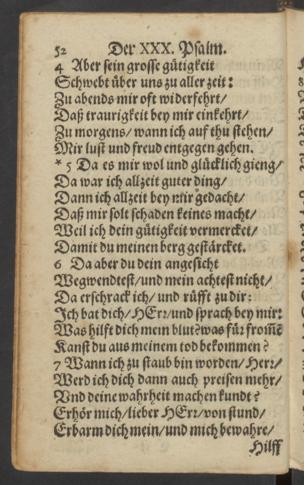 52 Der XXX. Psalm.
4 Aber sein grosse gütigkeit
Schwebt über uns zu aller zeit:
Zu abends mir oft widerfehrt/
Daß traurigkeit bey mir einkehrt/
Zu morgens/ wann ich auf thu stehen/
Mir lust und freud entgegen gehen.
* 5 Da es mir wol und glücklich gieng/
Da war ich allzeit guter ding/
Dann ich allzeit bey mir gedacht/
Daß mir solt schaden keines macht/
Weil ich dein gütigkeit vermercket/
Damit du meinen berg gestärcket.
6 Da aber du dein angesicht
Wegwendtest/ und mein achtest nicht/
Da erschrack ich/ und rüfft zu dir:
Ich bat dich/ HErꝛ/ und sprach bey mir:
Was hilft dich mein blut? was für from̃e
Kanst du aus meinem tod bekommen?
7 Wann ich zu staub bin worden/ Herꝛ/
Werd ich dich dann auch preisen mehr/
Vnd deine wahrheit machen kundt?
Erhör mich/ lieber HErꝛ/ von stund/
Erbarm dich mein/ und mich bewahre/
Hilff